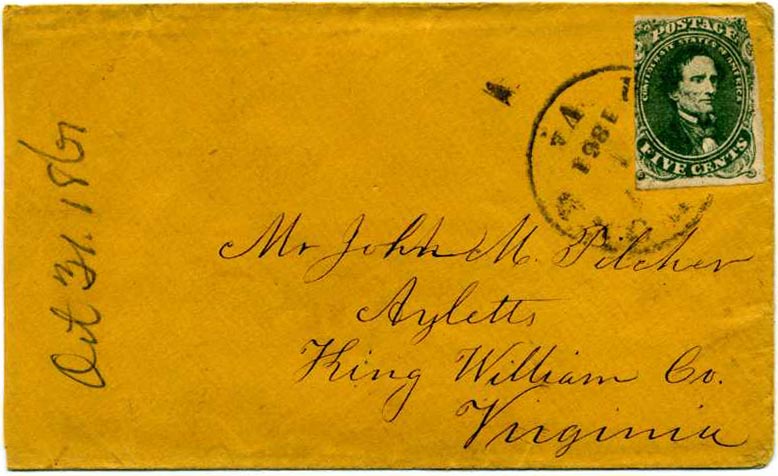 POSTAGE
CONFEDERATE STATES OF AMERICA
FIVE CENTS
Va
1861
Mr John M. Pilcher
Ayletts
King William Co.
Virginia
Oct 31. 1861